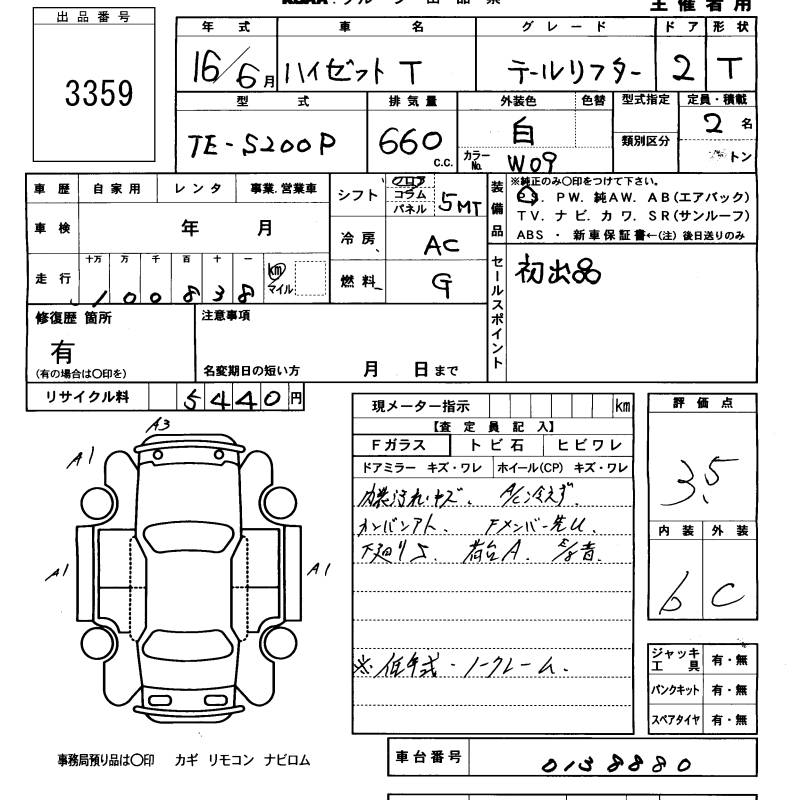 出品番号
3359
主催者用
年式 車名 グレード ドア 形状
16/6月 ハイゼット T テールリフター 2 T
型式 排気量 外装色 色替 型式指定 定員・積載
TE-S200P 660 c.c. 白 類別区分 2名
カラーNo. W09 トン
車歴 自家用 レンタ 事業.営業車
車検 年 月
走行 十万 万 千 百 十 一 km マイル
100838
シフト フロア コラム パネル 5MT
冷房 AC
燃料 G
装備品
※純正のみ〇印をつけて下さい。
P.S. P.W. 純AW. AB(エアバック)
TV. ナビ. カワ. SR(サンルーフ)
ABS ・ 新車保証書←(注) 後日送りのみ
セールスポイント
初出品
修復歴 箇所
有
(有の場合は〇印を)
注意事項
名変期日の短い方 月 日まで
リサイクル料 5440円
現メーター指示 km
【査定員記入】
Fガラス トビ石 ヒビワレ
ドアミラー キズ・ワレ ホイール(CP) キズ・ワレ
内装汚れ・キズ、 A/C冷えず、
カンバンアト、 Fメンバー先U、
下廻りS、 荷台A、
※低年式・ノークレーム.
評価点
3.5
内装 外装
b C
ジャッキ工具 有・無
パンクキット 有・無
スペアタイヤ 有・無
A3
A1
A1
A1
事務局預り品は〇印 カギ リモコン ナビロム
車台番号 0138880